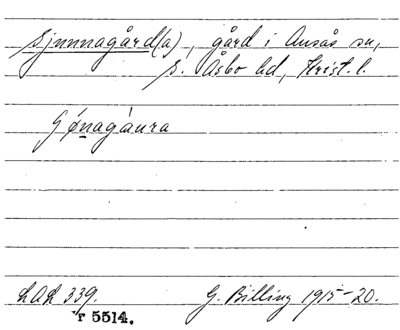 Sjunnagård(a), gård i Ausås sn,
S. Åsbo hd, Krist. l.
Gónagáura
LAL 339.
G. Billing 1915-20.
r 5514.